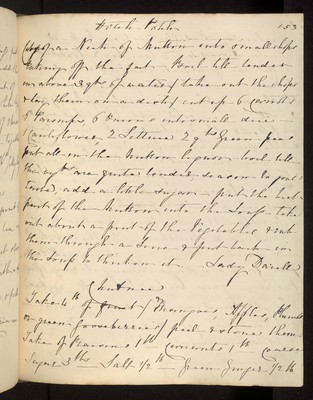 Hotch Potch 153
Chop a Neck of Mutton into small chops
taking off the fat. Boil till tender
in above 3 qts of water / take out the chops
& lay them on a dish / cut up 6 Carrots
6 Parsnips, 6 Onions into small dice
Cauliflower, 2 Lettuce 2 qts Green peas
put all in the Mutton liquor boil till
the vegts are quite tender, season to your
taste, add a little sugar - put the best
part of the Mutton into the Soup take
out about a pint of the Vegetables & rub
them through a Sieve & put back in
the Soup to thicken it. Lady
Chutnee
Take 4 lb of fruit / Mangoes, Apples, Plumbs
or green Gooseberries / peel & stone them
Take of Raisons 1 lb Currants 1 lb coarse
Sugar 3 lbs Salt 1/2 lb Green Ginger 1/2 lb